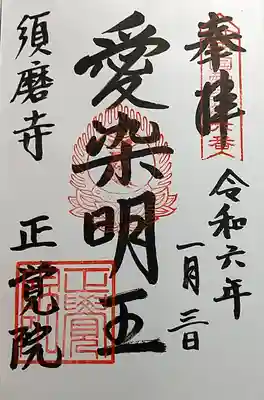 奉拝
令和六年
一月三日
愛染明王
須磨寺 正覚院